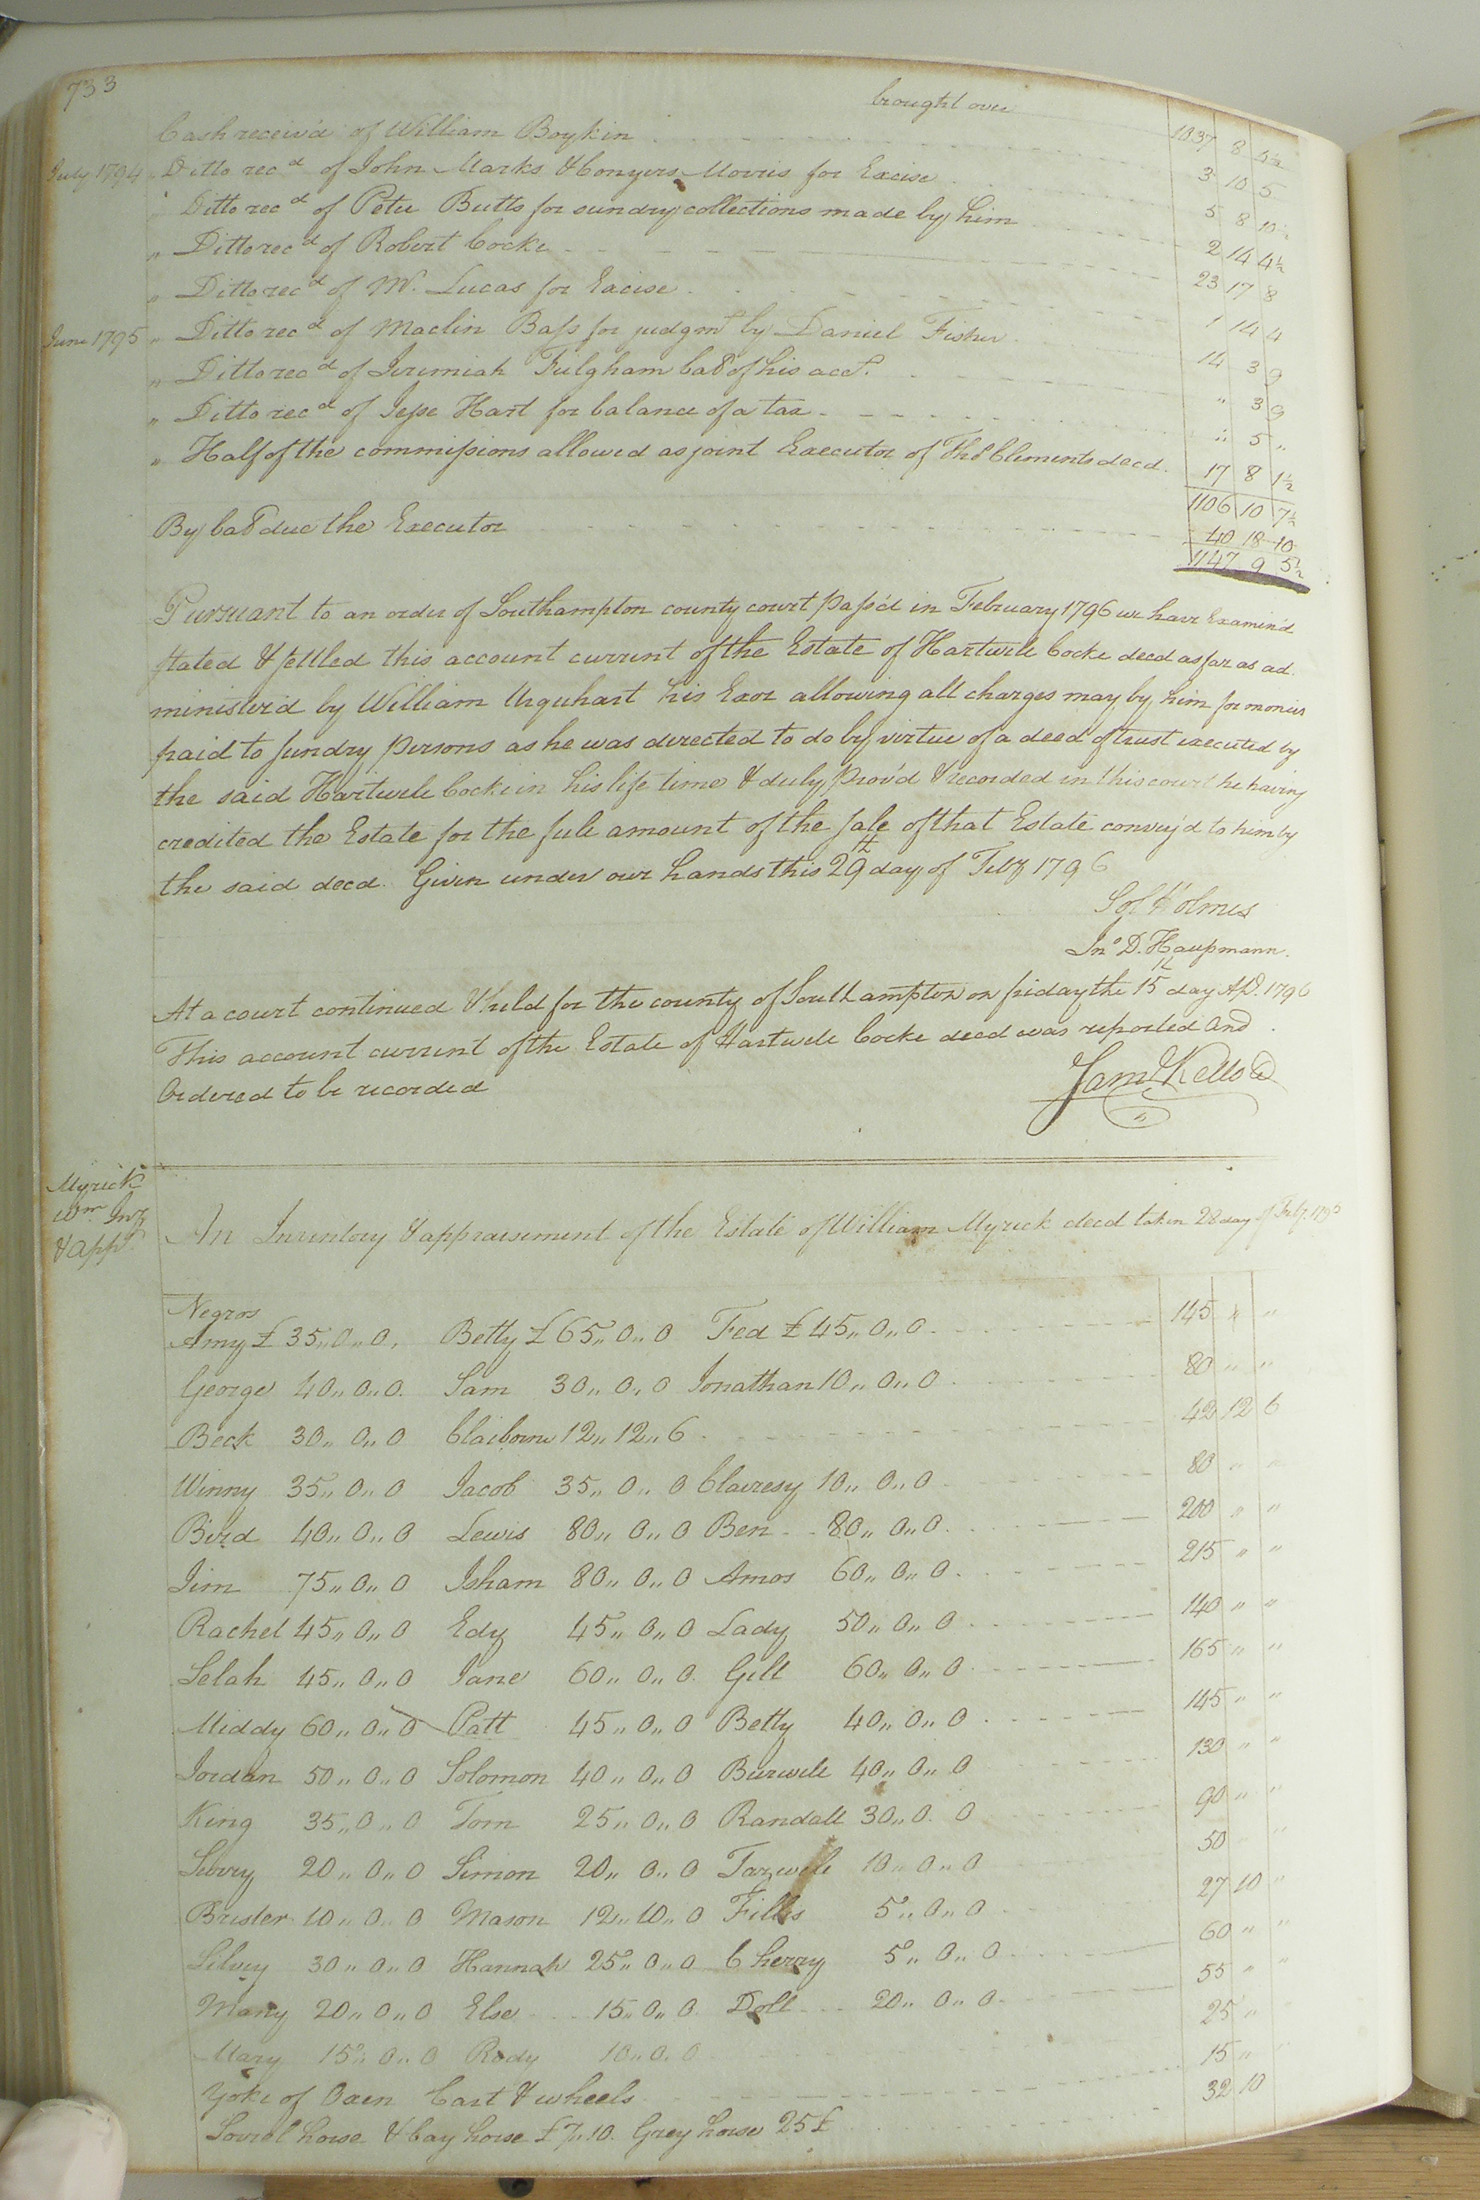 733
brought over 1037 8 4½
Cash receiv'd of William Boykin 3 10 5
July 1794 " Ditto recd of John Marks & Conyers Morris for Excise 5 8 10½
" Ditto recd of Peter Butts for sundry collections made by him 2 14 4½
" Ditto recd of Robert Cocke 23 17 8
" Ditto recd of W. Lucas for Excise 1 14 4
June 1795 " Ditto recd of Maclin Bass for judgmt by Daniel Fisher 14 3 9
" Ditto recd of Jeremiah Fulgham bal of his acct. " 3 9
" Ditto recd of Jesse Hart for balance of a tax " 5 "
" Half of the commissions allowed as joint Executor of Thos Clements decd. 17 8 1½
1106 10 7½
By bal due the Executor 40 18 10
1147 9 5½
Pursuant to an order of Southampton county court pass'd in February 1796 we have Examin'd
stated & settled this account current of the Estate of Hartwell Cocke decd as far as ad
minister'd by William Urquhart his Exor allowing all charges may by him for monies
paid to sundry persons as he was directed to do by virtue of a deed of trust executed by
the said Hartwell Cocke in his life time & duly prov'd & recorded in this court he having
credited the Estate for the full amount of the sale of that Estate convey'd to him by
the said decd. Given under our hands this 29th day of Feby 1796
Sol Holmes
Jno D. Haupmann.
At a court continued & held for the county of Southampton on friday the 15th day Apl. 1796
This account current of the Estate of Hartwell Cocke decd was reported and
Ordered to be recorded
Saml Kello C
Myrick
Wm Invy
& Appt
An Inventory & appraisement of the Estate of William Myrick decd taken 28 day of Feby.
Negros
Amy £ 35,,0,,0. Betty £ 65,,0,,0 Fed £ 45,,0,,0 145 " "
George 40,,0,,0. Sam 30,,0,,0 Jonathan 10,,0,,0 80 " "
Beck 30,,0,,0 Claiborne 12,,12,,6 42 12 6
Winny 35,,0,,0 Jacob 35,,0,,0 Clairesy 10,,0,,0 80 " "
Bird 40,,0,,0 Lewis 80,,0,,0 Ben 80,,0,,0 200 " "
Jim 75,,0,,0 Isham 80,,0,,0 Amos 60,,0,,0 215 " "
Rachel 45,,0,,0 Edy 45,,0,,0 Lady 50,,0,,0 140 " "
Selah 45,,0,,0 Jane 60,,0,,0 Gill 60,,0,,0 165 " "
Middy 60,,0,,0 Patt 45,,0,,0 Betty 40,,0,,0 145 " "
Jordan 50,,0,,0 Solomon 40,,0,,0 Burwell 40,,0,,0 130 " "
King 35,,0,,0 Tom 25,,0,,0 Randall 30,,0.0 90 " "
20,,0,,0 Simon 20,,0,,0 Tazwell 10,,0,,0 50 " "
Brister 10,,0,,0 Mason 12,,10,,0 Fillis 5,,0,,0 27 10 "
Silvey 30,,0,,0 Hannah 25,,0,,0 Cherry 5,,0,,0 60 " "
Mary 20,,0,,0 Else 15,,0,,0 Doll 20,,0,,0 55 " "
Mary 15,,0,,0 Rody 10,,0,,0 25 "
Yoke of Oxen Cart & wheels 15 "
Sorrel horse & bay horse £7,,10. Grey horse 25£ 32 10